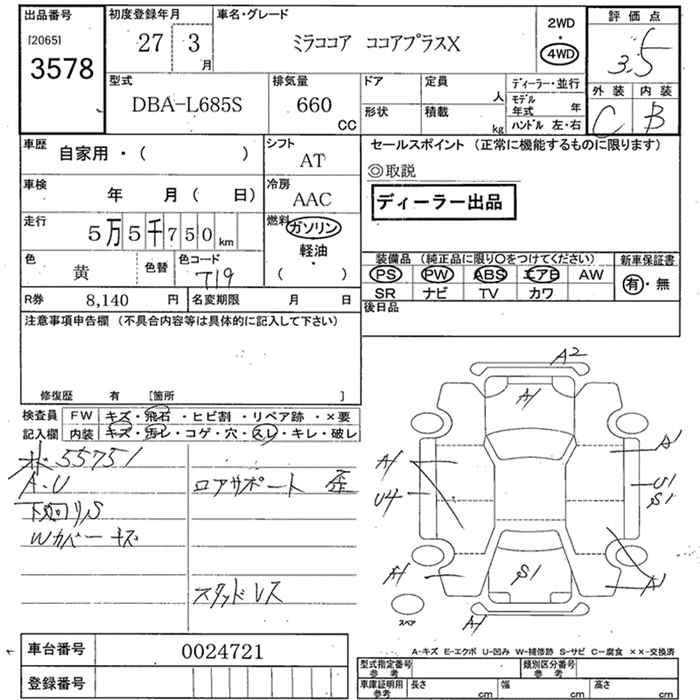 出品番号 初度登録年月 車名・グレード 2WD ・ 4WD 評価点
[2065] 3578 27 3月 ミラココア ココアプラスX 3.5
型式 排気量 ドア 定員 人 ディーラー・並行 外装 内装
DBA-L685S 660 CC 形状 積載 kg モデル年式 年 ハンドル 左・右 C B
車歴 自家用・( ) シフト AT セールスポイント (正常に機能するものに限ります)
車検 年 月 ( 日) 冷房 AAC ◎取説
ディーラー出品
走行 5万5千750km 燃料 ガソリン 軽油・ ( )
色 黄 色替 色コード T19 装備品 (純正品に限り○をつけてください) 新車保証書
PS PW ABS エアB AW 有・無
SR ナビ TV カワ
R券 8,140 円 名変期限 月 日 後日品
注意事項申告欄 (不具合内容等は具体的に記入して下さい)
修復歴 有 [箇所 ]
検査員 FW キズ・飛石・ヒビ割・リペア跡・×要
記入欄 内装 キズ・汚レ・コゲ・穴・スレ・キレ・破レ
55751
A・U ロアサポート 歪
下廻リS
Wカバーキズ
スタッドレス
A2
A1
A1 A1
U4 U1
S1
A1 S1 A1
スペア A1
A-キズ E-エクボ U-凹み W-補修跡 S-サビ C-腐食 ××-交換済
車台番号 0024721
登録番号
型式指定番号 参考 類別区分番号 参考
車庫証明用 参考 長さ cm 幅 cm 高さ cm